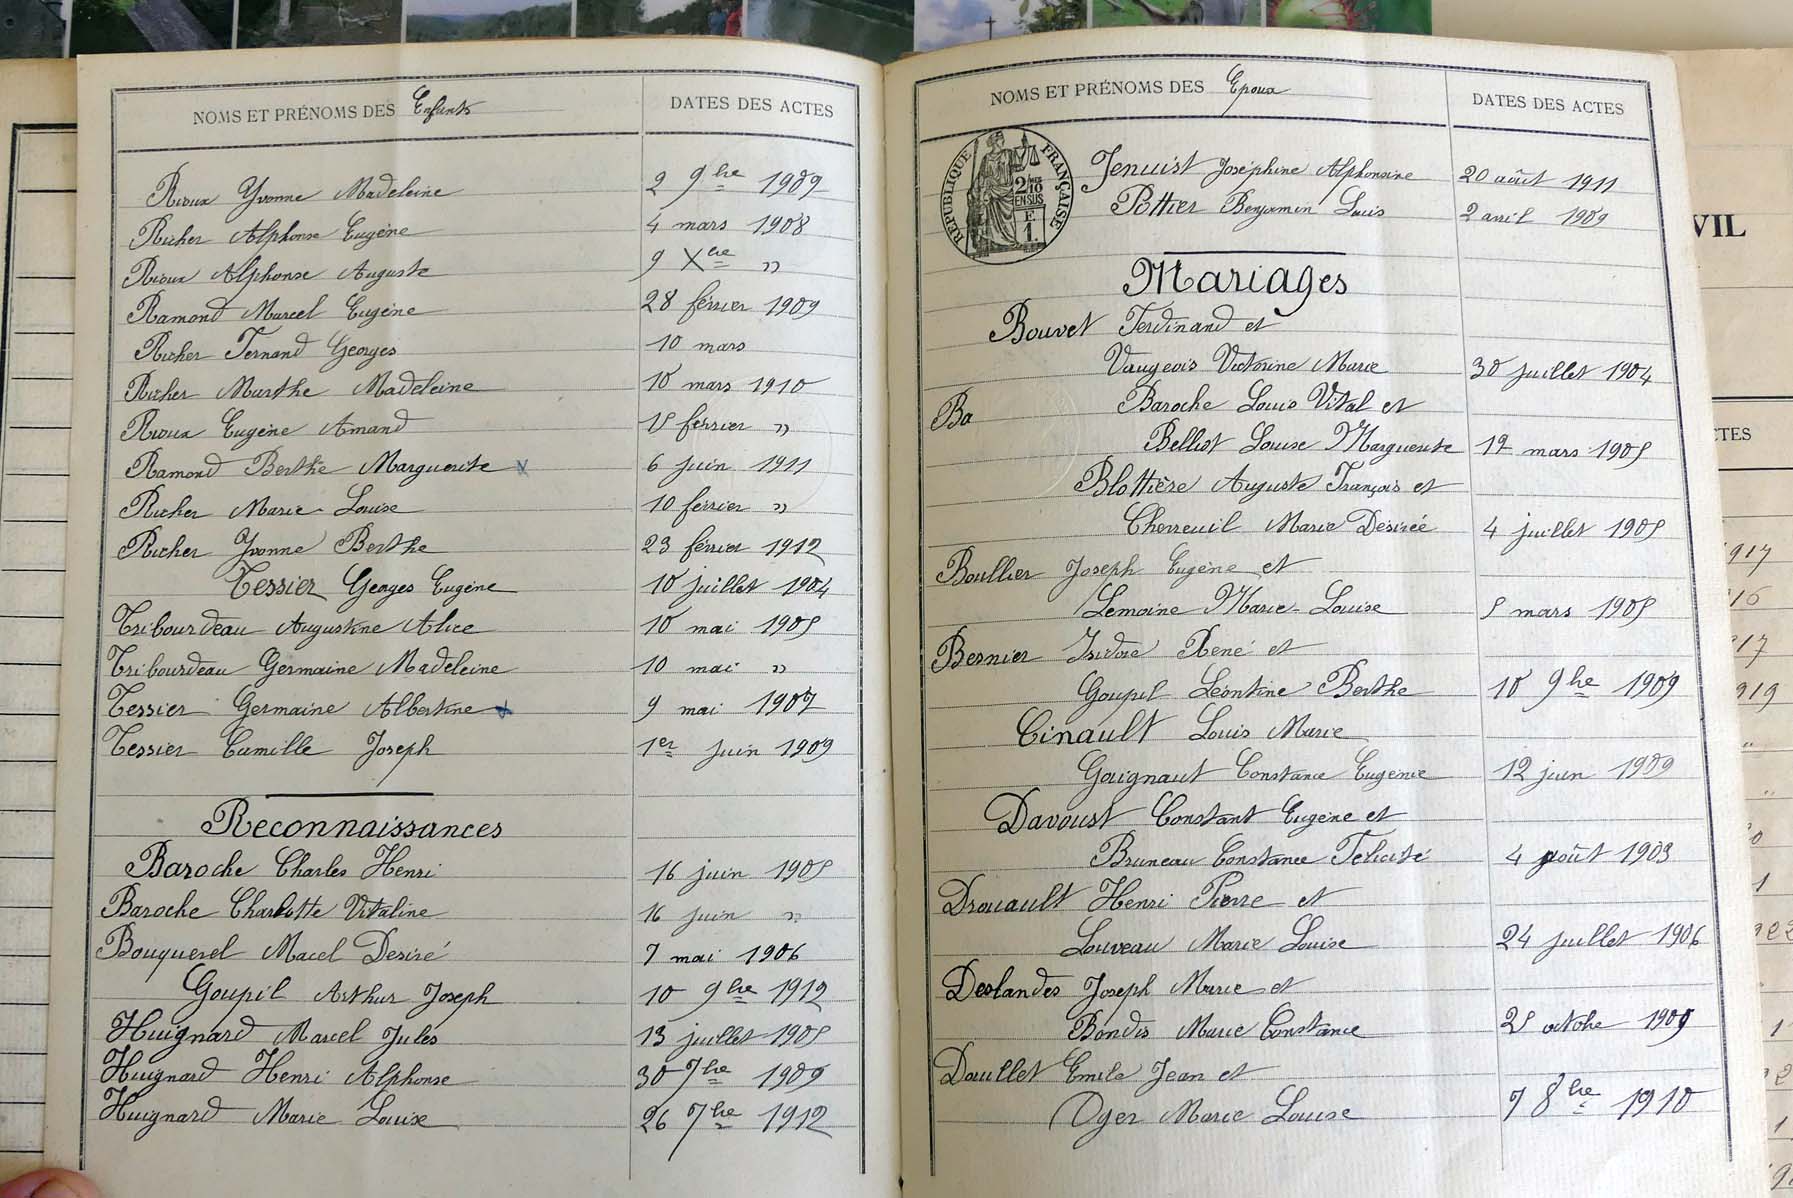 NOMS ET PRÉNOMS DES Enfants DATES DES ACTES
Rioux Yvonne Madeleine 2 9bre 1909
Richer Alphonse Eugène 4 mars 1908
Rioux Alphonse Auguste 9 Xbre "
Ramond Marcel Eugène 28 février 1909
Richer Fernand Georges 10 mars
Richer Marthe Madeleine 10 mars 1910
Rioux Eugène Amand février "
Ramond Berthe Marguerite 6 juin 1911
Richer Marie-Louise 10 février "
Richer Yvonne Berthe 23 février 1912
Tessier Georges Eugène 10 juillet 1904
Tribourdeau Augustine Alice 10 mai 1905
Tribourdeau Germaine Madeleine 10 mai "
Tessier Germaine Albertine 9 mai 1907
Tessier Camille Joseph 1er juin 1909
Reconnaissances
Baroche Charles Henri 16 juin 1905
Baroche Charlotte Vitaline 16 juin "
Bouquerel Macel Desiré 7 mai 1906
Goupil Arthur Joseph 10 9bre 1912
Huignard Marcel Jules 13 juillet 1905
Huignard Henri Alphonse 30 7bre 1909
Huignard Marie Louise 26 7bre 1912
NOMS ET PRÉNOMS DES Epoux DATES DES ACTES
RÉPUBLIQUE FRANÇAISE
2/10 EN SUS
Jenuist Joséphine Alphonsine 20 août 1911
Pottier Benjamin Louis 2 avril 1909
Mariages
Bouvet Ferdinand et
Vaugeois Victorine Marie 30 juillet 1904
Ba Baroche Louis Vital et
Belliot Louise Marguerite mars 1905
Blottière Auguste François et
Chevreuil Marie Désirée 4 juillet 1905
Boullier Joseph Eugène et
Lemoine Marie-Louise 5 mars 1905
Besnier Isidore René et
Goupil Léontine Berthe 10 9bre 1909
Cinault Louis Marie
Goignaut Constance Eugénie 12 juin 1909
Davoust Constant Eugène et
Bruneau Constance Félicité 4 août 1903
Drouault Henri Pierre et
Louveau Marie Louise 24 juillet 1906
Deslandes Joseph Marie et
Bondis Marie Constance 25 octobe 1909
Douillet Emile Jean et
Oger Marie Louise 7 8bre 1910
VIL
CTES